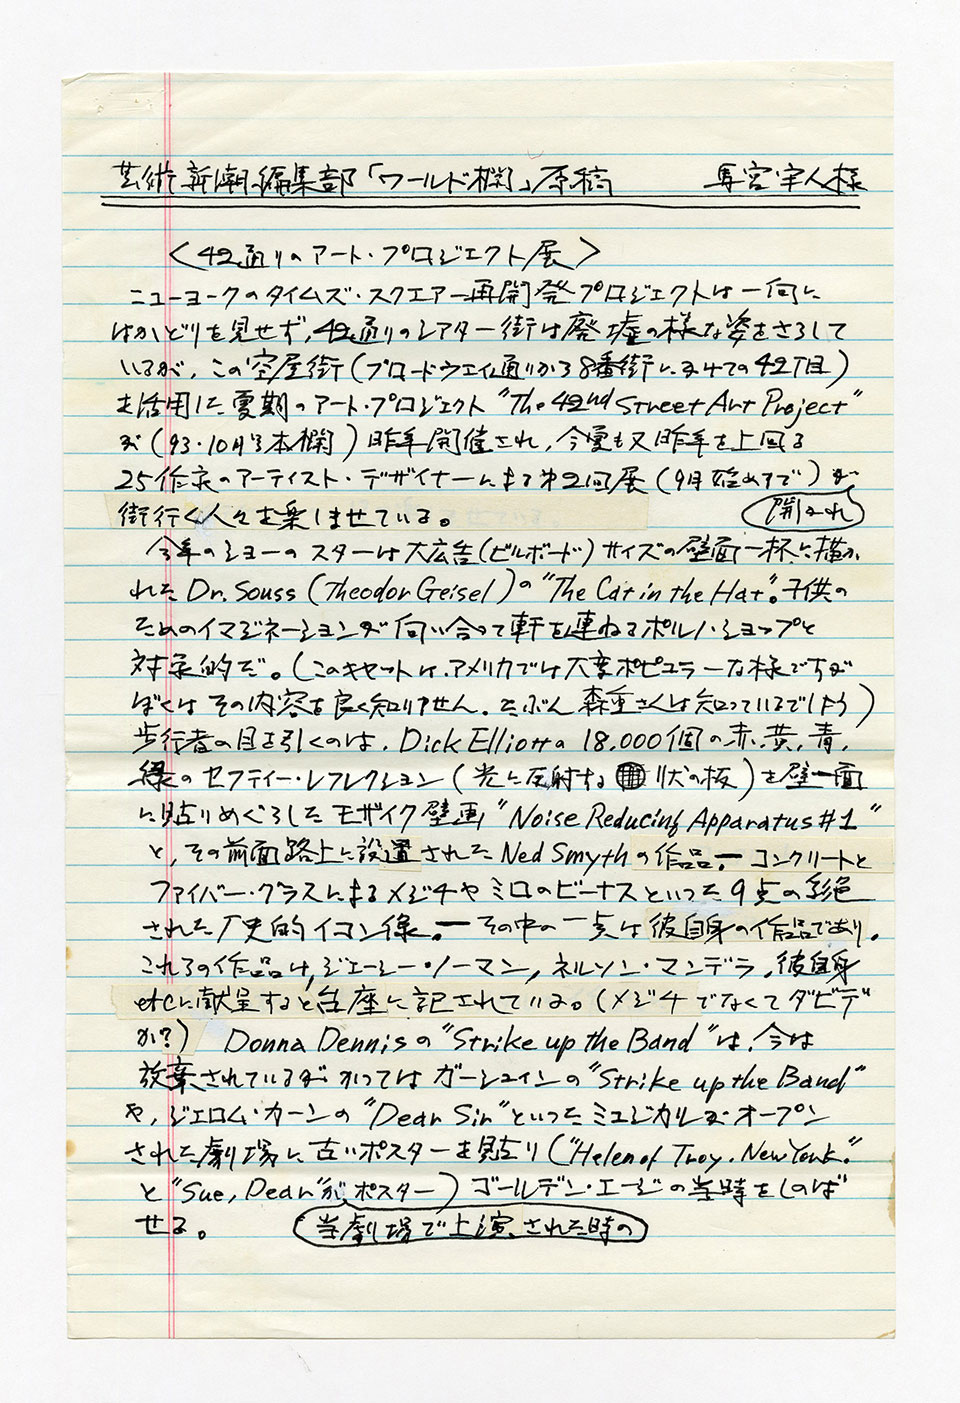 芸術新潮編集部「ワールド欄」原稿 馬宮宇人様
〈42通りのアート・プロジェクト展〉
ニューヨークのタイムズ・スクエアー再開発プロジェクトは一向に
はかどりを見せず、42通りのシアター街は廃墟の様な姿をさらして
いるが、この空屋街(ブロードウエイ通りから8番街にかけての42丁目)
を活用した夏期のアート・プロジェクト"The 42nd Street Art Project"
が(93・10月号本欄)昨年開催され、今夏も又昨年を上回る
25作家のアーティスト・デザイナーによる第2回展(9月始めまで)が
開かれ
街行く人々を楽しませている。
今年のショーのスターは大広告(ビルボード)サイズの壁面一杯に描か
れたDr. Souss (Theodor Geisel)の"The Cat in the Hat"。子供の
ためのイマジネーションが向い合って軒を連ねるポルノ・ショップと
対象的だ。(このキャットは、アメリカでは大変ポピュラーな様ですが
ぼくはその内容を良く知りません。たぶん森重さんは知っているでしょう)
歩行者の目を引くのは、Dick Elliottの18,000個の赤、黄、青、
緑のセフティー・レフレクション(光に反射する 状の板)を壁一面
に貼りめぐらしたモザイク壁画"Noise Reducing Apparatus #1"
と、その前面路上に設置されたNed Smythの作品ー コンクリートと
ファイバー・グラスによるメジチやミロのビーナスといった9点の彩色
された歴史的イコン像。ーその中の一点は彼自身の作品であり、
これらの作品は、ジェーシー・ノーマン,ネルソン・マンデラ,彼自身
etcに献呈すると台座に記されている。(メジチでなくてダビデ
か?) Donna Dennisの"Strike up the Band"は、今は
放棄されているが かつてはガーシュインの"Strike up the Band"
や、ジェロム・カーンの"Dear Sir"といったミュジカルがオープン
された劇場に古いポスターを貼り("Helen of Troy, New York"
と"Sue, Dear"が、ポスター)ゴールデン・エージの当時をしのば
せる。 当劇場で上演された時の